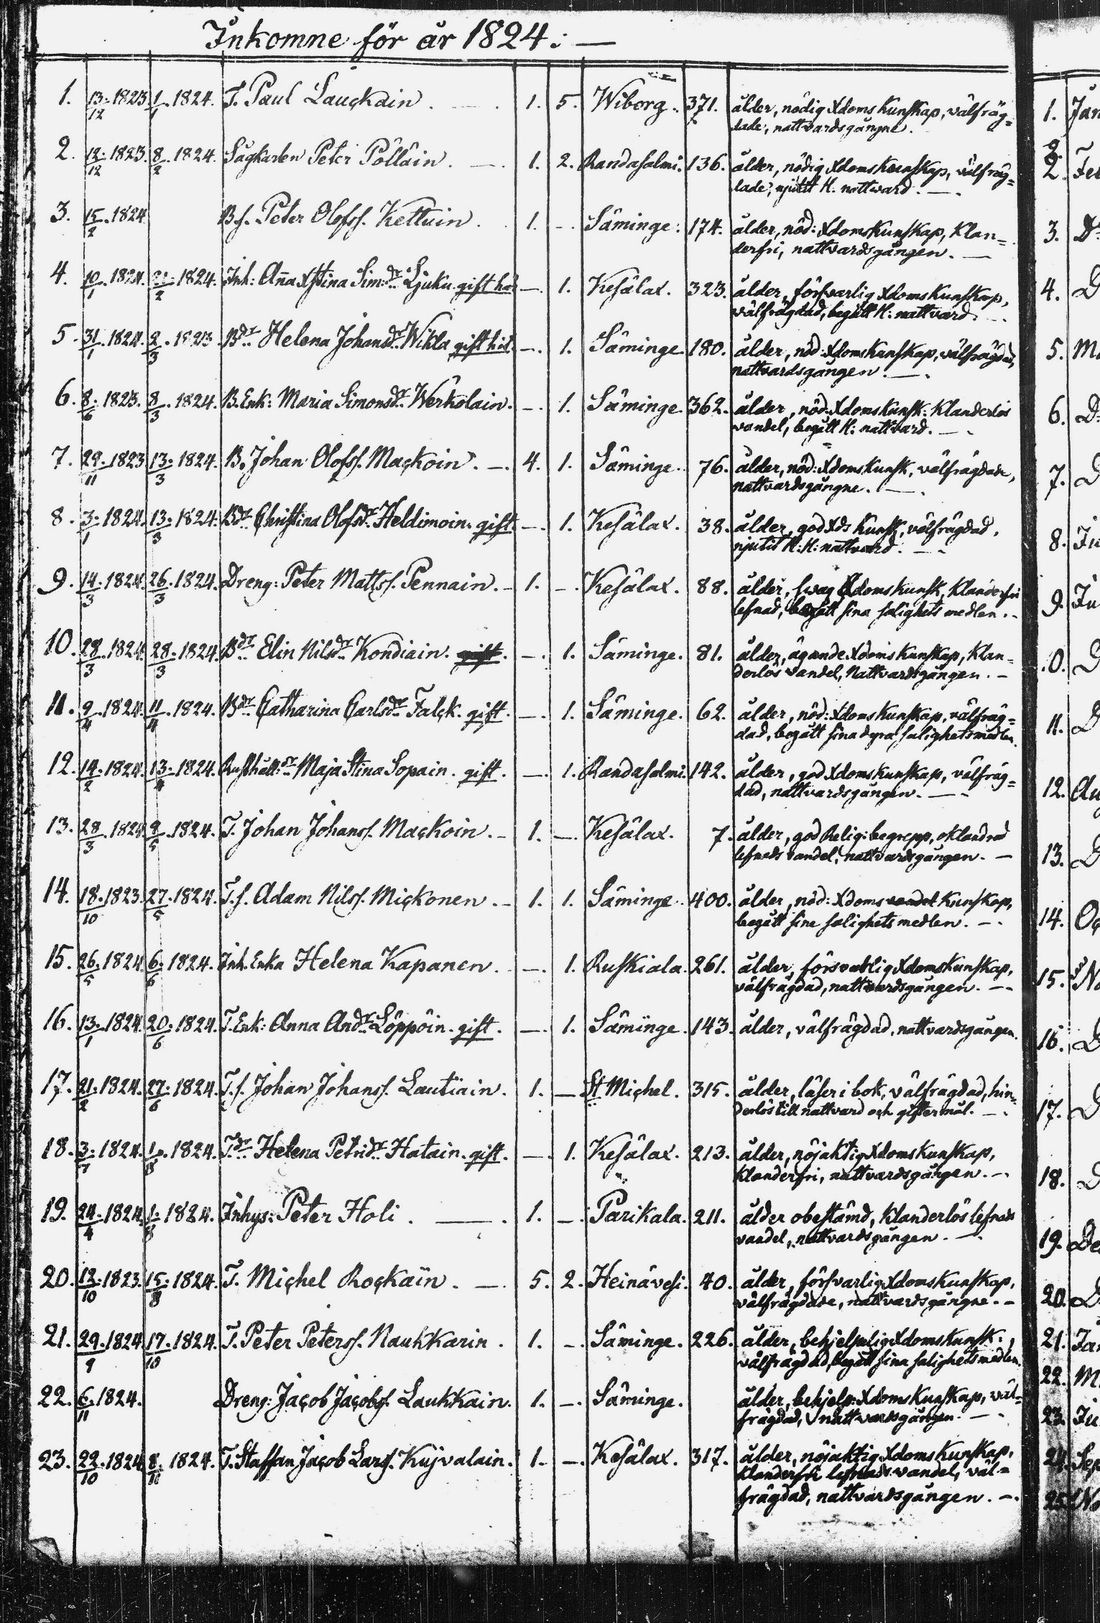 Inkomne för år 1824. —
1. 13/12 1823. 1/1 1824. T. Paul Lauckain. — 1. 5. Wiborg. 371. ålder, nödig Xdoms kunskap, välfräg=
dade, nattvardsgångne.
2. 12/12 1823. 8/2 1824. Sågkarlen Peter Pöllåin. — 1. 2. Randasalmi. 136. ålder, nödig Xdoms kunskap, välfräg=
dade, njutit H. nattvard. —
3. 15/2 1824. Bs. Peter Olofss. Kettuin. 1. - Säminge. 174. ålder, nöd: Xdoms kunskap, klan=
derfri, nattvardsgången. —
4. 10/1 1824. /2 1824. Inh: Anna Xstina Sim:dr Ljuku gift hos — 1. Kesälax. 323. ålder, försvarlig Xdoms kunskap,
välfrägdad, begått H. nattvard
5. 31/1 1824. 2/3 1823. Bdr Helena Johansdr Wikla gift hit — 1. Säminge 180. ålder, nöd: Xdoms kunskap, välfrägdad,
nattvardsgången. —
6. 8/6 1823. 8/3 1824. B. Enk: Maria Simonsdr Werkolain. — 1. Säminge 362. ålder, nöd: Xdoms kunsk: klanderlös
vandel, begått H: nattvard. —
7. 29/11 1823 13/3 1824. B. Johan Olofss. Mackoin. — 4. 1. Säminge. 76. ålder, nöd: Xdoms kunsk, välfrägdade,
nattvardsgångne. —
8. 3/1 1824. 13/3 1824. Bdr Christina Olofsdr Heldimoin. gift — 1. Kesälax. 38. ålder, god Xds kunsk, välfrägdad,
njutit H: H: nattvard. —
9. 14/3 1824. 26/3 1824. Dreng: Peter Mattss. Pennain. — 1. — Kesälax. 88. ålder, svag Xdoms kunsk, klanderfri
lefnad, begått sina salighets medlen. -
10. 28/3 1824. 28/3 1824. Bdr Elin Nilsdr Kondiain. gift. — 1. Säminge. 81. ålder, ägande Xdoms kunskap, klan=
derlös vandel, Nattvardsgången. —
11. 9/4 1824. 11/4 1824. Bdr Catharina Carlsdr Falck. gift. — 1. Säminge. 62. ålder, nöd: Xdoms kunskap, välfräg=
dad, begått sina dyra salighetsmedlen.
12. 14/2 1824. 13/4 1824. Rusthåll:dr Maja Stina Sopain. gift. — 1. Randasalmi. 142. ålder, god Xdoms kunskap, välfräg=
dad, nattvardsgången. —
13. 28/3 1824 9/5 1824. T. Johan Johanss. Mackoin. — 1. — Kesälax. 7. ålder, god Relig: begrepp, oklandrad
lefnads vandel, nattvardsgången. —
14. 18/10 1823. 27/5 1824. T.s. Adam Nilss. Mickonen. — 1. 1. Säminge. 400. ålder, nöd: Xdoms vandel kunskap,
begått sine salighetsmedlen. —
15. 26/5 1824. 6/6 1824. Inh. Enka Helena Kapanen. — 1. Ruskiala. 261. ålder, försvarlig Xdomskunskap,
välfrägdad, nattvardsgången. —
16. 13/1 1824. 20/6 1824. T. Enk: Anna Andr: Löppöin. gift. — 1. Säminge. 143. ålder, välfrägdad, nattvardsgången.
17. 21/2 1824. 27/6 1824. T.s. Johan Johanss. Lautiain. 1. — St Michel. 315. ålder, läser i bok, välfrägdad, hin=
derlös till nattvard och giftermål. —
18. 3/7 1824. 1/8 1824. Tdr Helena Petridr Hatain. gift. — 1. Kesälax. 213. ålder, nöjaktig Xdoms kunskap,
klanderfri, nattvardsgången. —
19. 24/4 1824. 1/8 1824. Inhys: Peter Holi. — 1. — Parikala. 211. ålder obestämd, klanderlös lefnads
vandel, nattvardsgången. —
20. 12/10 1823. 15/8 1824. T. Michel Rockain. — 5. 2. Heinävesi. 40. ålder, försvarlig Xdoms kunskap,
välfrägdade, nattvardsgångne. —
21. 29/9 1824. 17/10 1824. T. Peter Peterss. Nauhkarin. 1. — Säminge. 226. ålder, behjelplig Xdoms kunsk:,
välfrägdad, begått sina salighetsmedlen.
22. 6/11 1824. Dreng: Jacob Jacobss. Laukkain. 1. — Säminge. ålder, behjelp: Xdoms kunskap, väl=
frägdad, nattvardsgången. —
23. 22/10 1824. 8/11 1824. T. Staffan Jacob Larss. Kujvalain. 1. — Kesälax. 317. ålder, nöjaktig Xdoms kunskap,
klanderfri lefnads vandel, väl=
frägdad, nattvardsgången. —